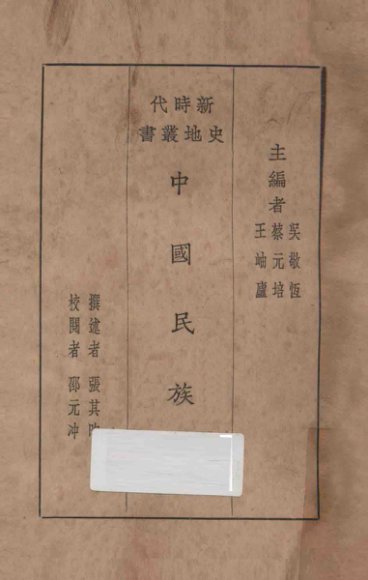 主編者
吳敬恆
蔡元培
王岫廬
新時代
史地叢書
中國民族
撰述者 張其昀
校閱者 邵元冲